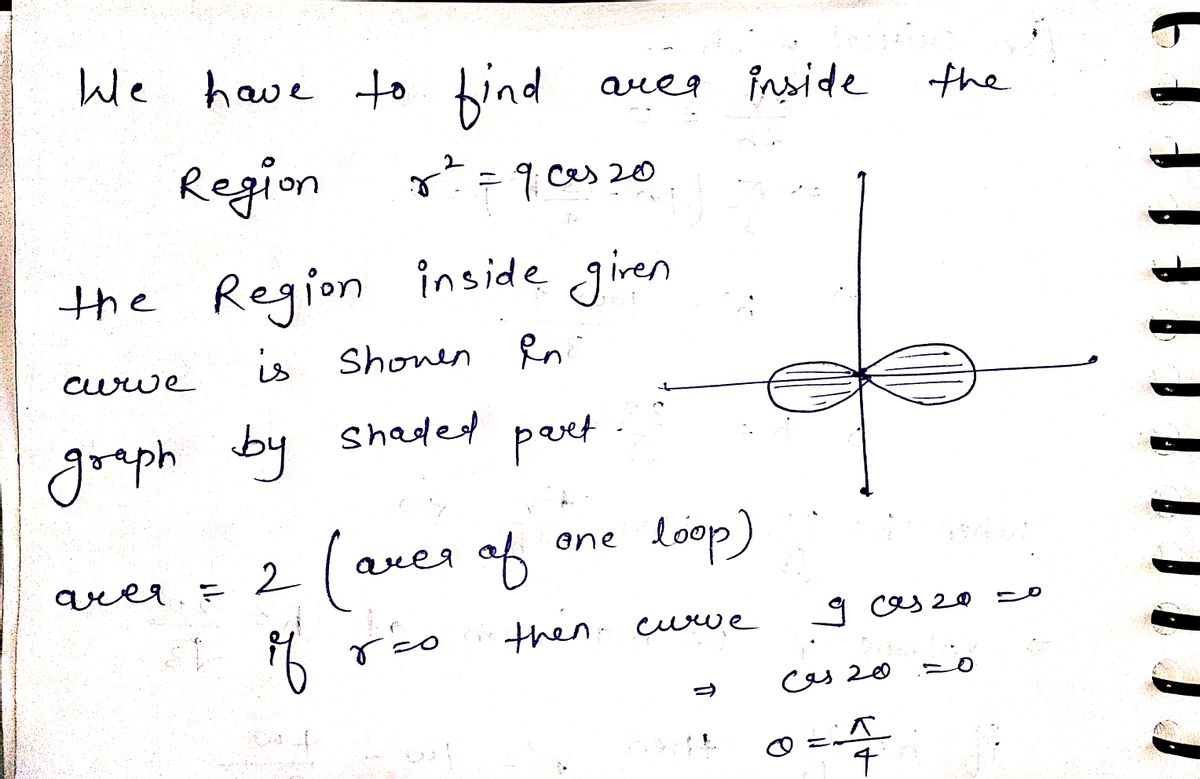 We have to find area inside the
Region r² = 9 cos 2θ
the Region inside given
curve is shown in
graph by shaded part.
area = 2 (area of one loop)
if r=0 then curve 9 cos 2θ = 0
⇒ cos 2θ = 0
θ = π/4